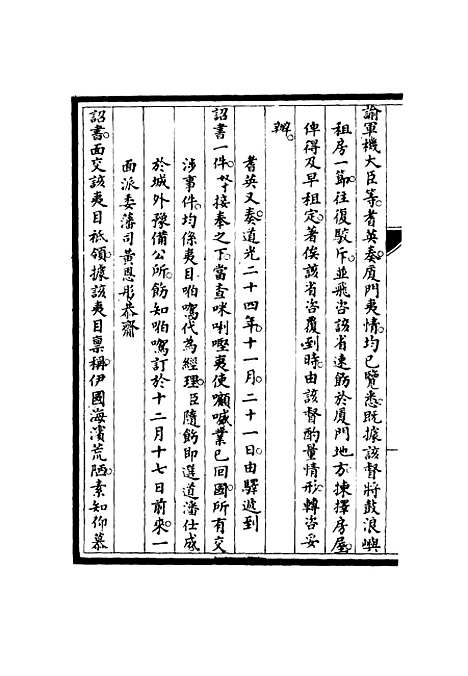 諭軍機大臣等。耆英奏廈門夷情。均已覽悉。既據該督將鼓浪嶼
租房一節。往復駮斥。並飛咨該省速飭於廈門地方揀擇房屋。
俾得及早租定。著俟該省咨覆到時。由該督酌量情形。轉咨妥
辦。
耆英又奏。道光二十四年十一月。二十一日。由驛遞到
詔書一件。等接奉之下。當查咪唎𠸄夷使嘞業已回國。所有交
涉事件。均係夷目伯嚕代為經理。臣隨飭即選道潘仕成
於城外豫備公所。飭知伯嚕訂於十二月十七日前來。一
面派委藩司黃恩彤恭齎
詔書面交該夷目祗領。據該夷目稟稱。伊國海濱荒陋。素知仰慕